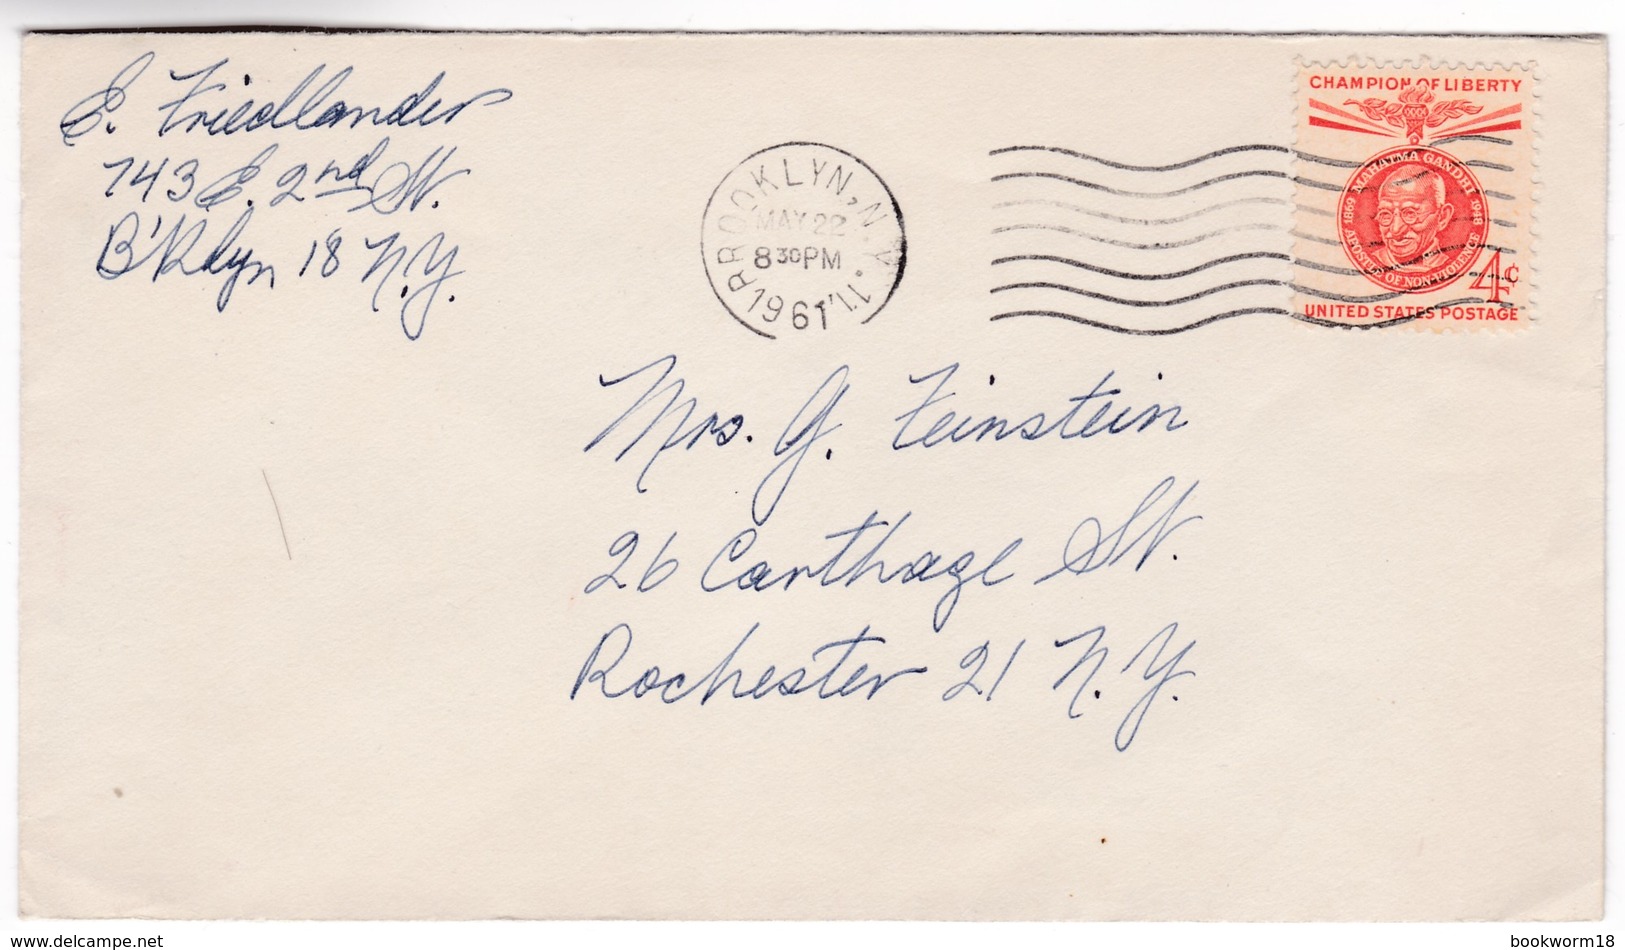 E. Friedlander
743 E. 2nd St.
B'klyn 18 N.Y.
BROOKLYN, N.Y.
MAY 22
8 30 PM
1961
CHAMPION OF LIBERTY
MAHATMA GANDHI
1869 1948
APOSTLE OF NON-VIOLENCE
4¢
UNITED STATES POSTAGE
Mrs. G. Feinstein
26 Carthage St.
Rochester 21 N.Y.
www.delcampe.net
bookworm18